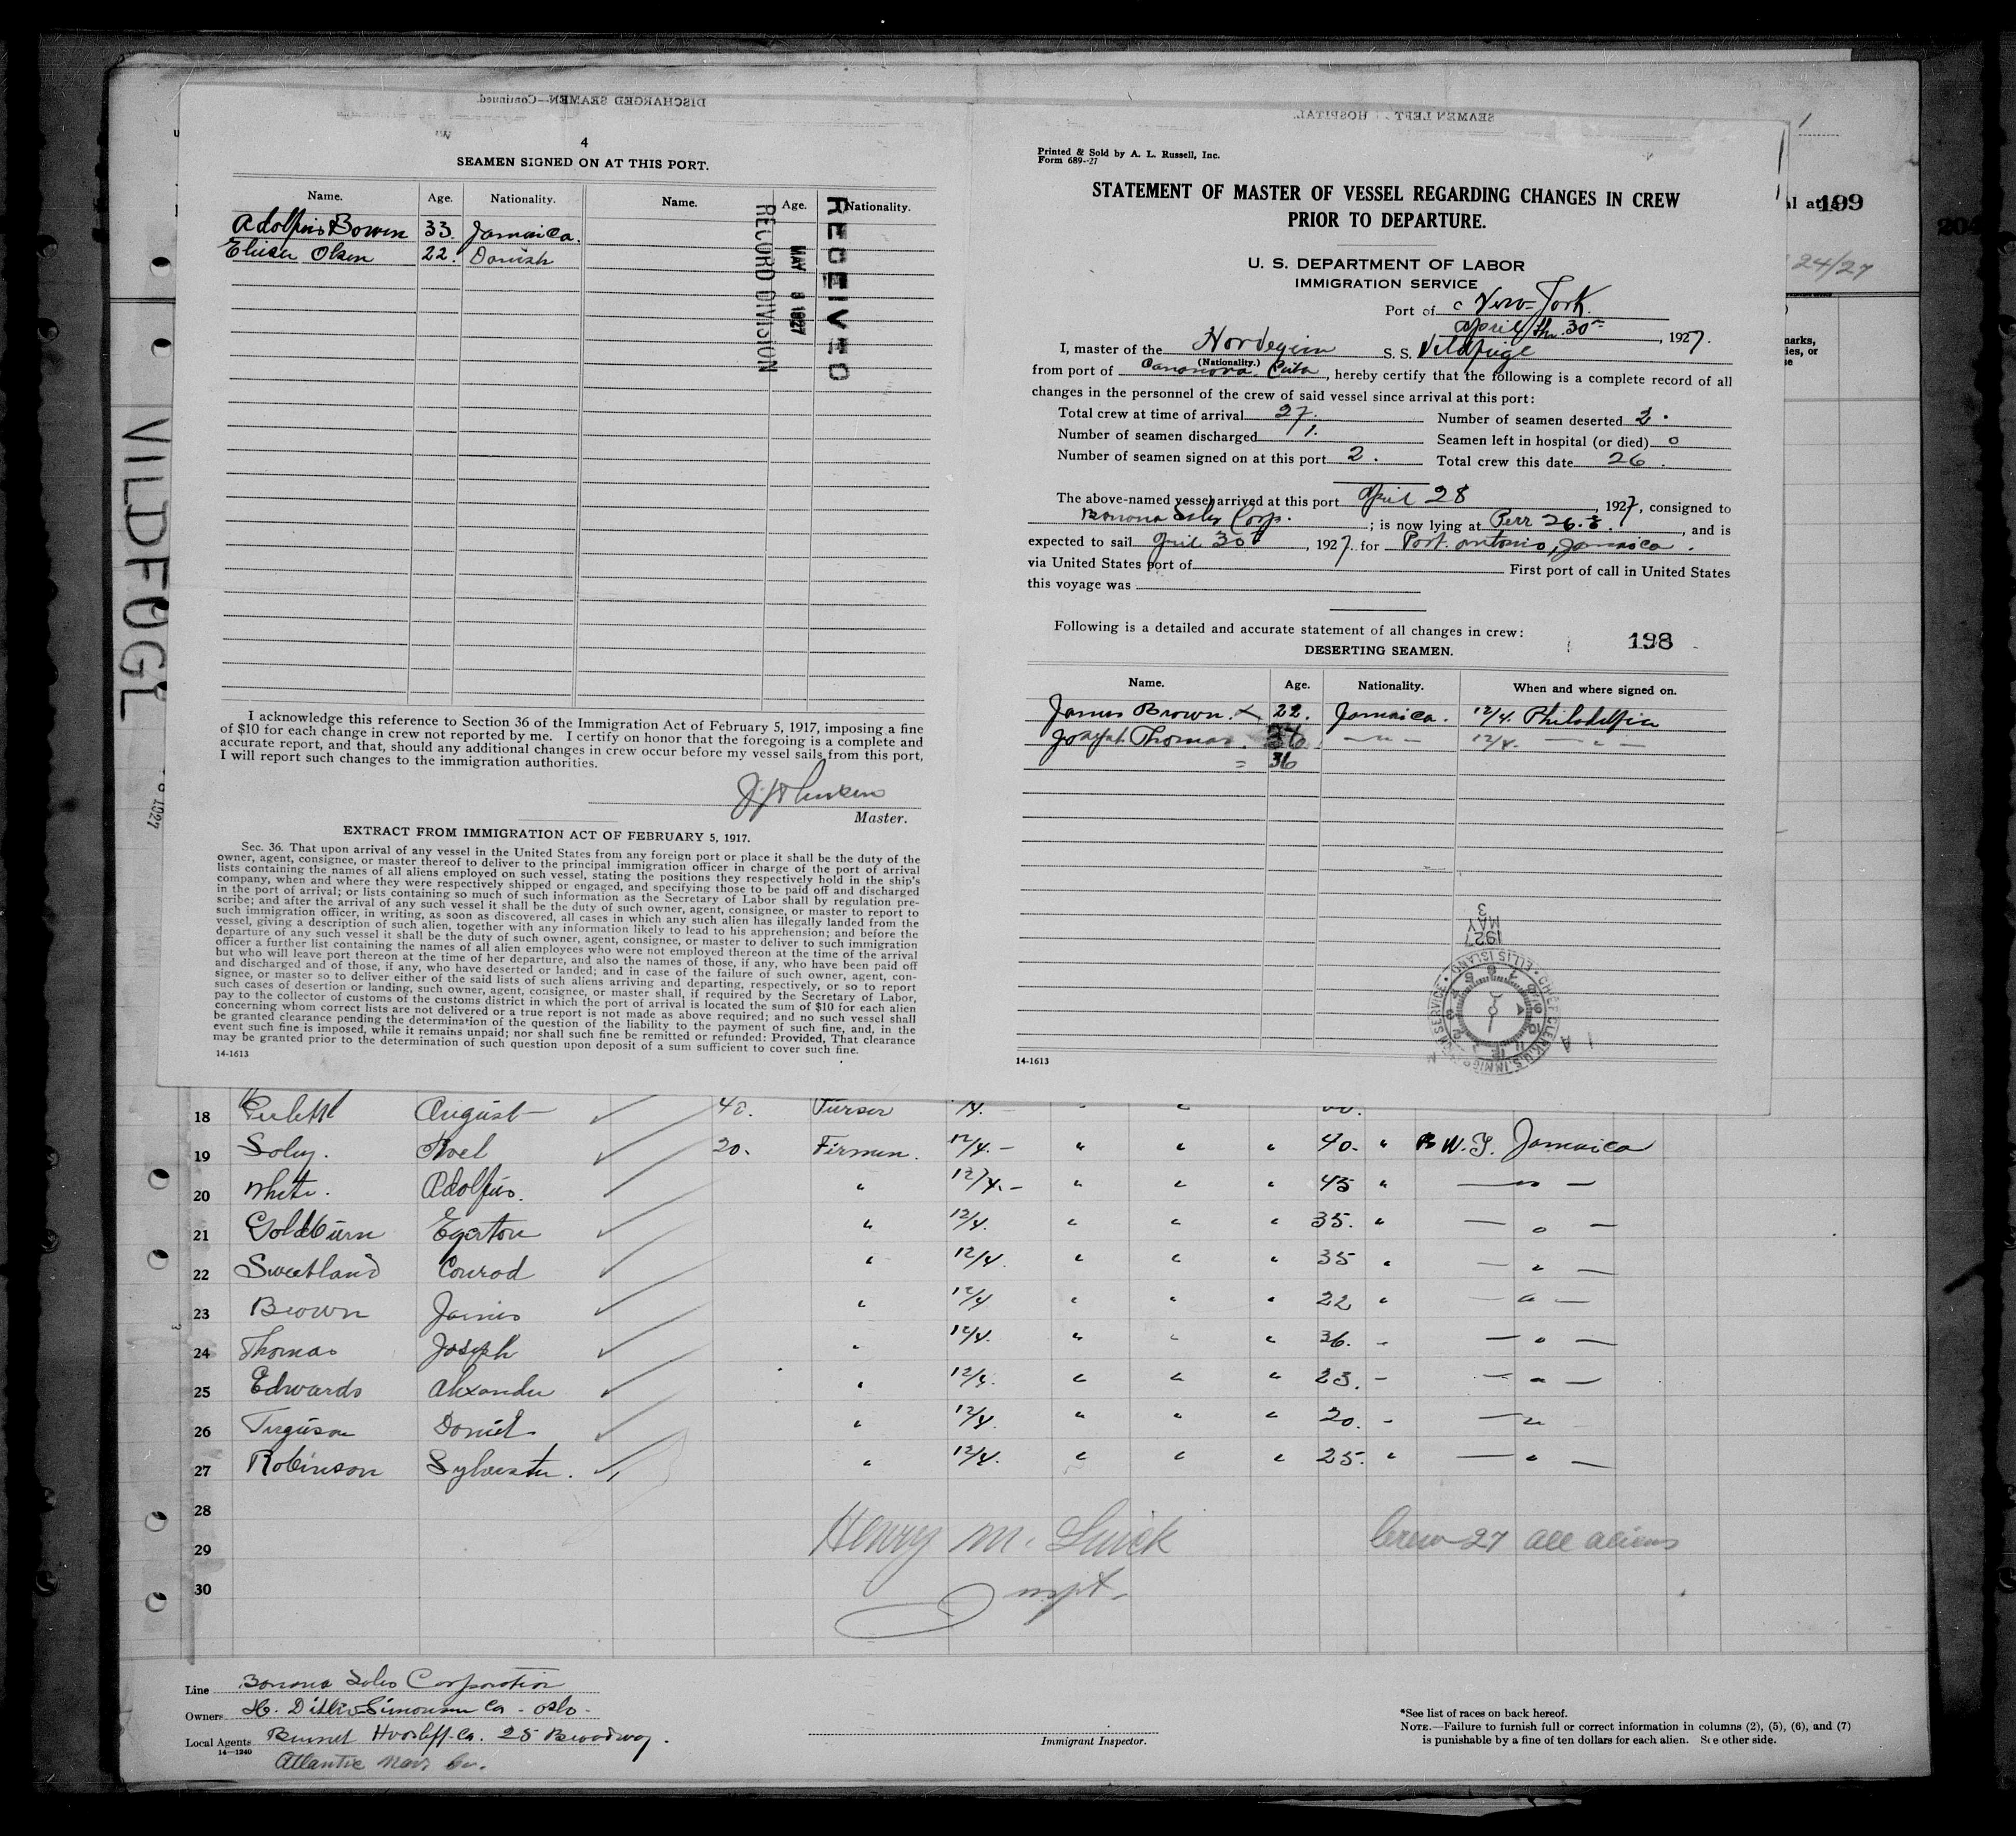 4
SEAMEN SIGNED ON AT THIS PORT.
Name. Age. Nationality. Name. Age. Nationality.
Adolfius Bowen 33. Jamaica.
Olsen 22. Danish
RECEIVED
MAY 3 1927
RECORD DIVISION
I acknowledge this reference to Section 36 of the Immigration Act of February 5, 1917, imposing a fine
of $10 for each change in crew not reported by me. I certify on honor that the foregoing is a complete and
accurate report, and that, should any additional changes in crew occur before my vessel sails from this port,
I will report such changes to the immigration authorities.
Master.
EXTRACT FROM IMMIGRATION ACT OF FEBRUARY 5, 1917.
Sec. 36. That upon arrival of any vessel in the United States from any foreign port or place it shall be the duty of the
owner, agent, consignee, or master thereof to deliver to the principal immigration officer in charge of the port of arrival
lists containing the names of all aliens employed on such vessel, stating the positions they respectively hold in the ship's
company, when and where they were respectively shipped or engaged, and specifying those to be paid off and discharged
in the port of arrival; or lists containing so much of such information as the Secretary of Labor shall by regulation pre-
scribe; and after the arrival of any such vessel it shall be the duty of such owner, agent, consignee, or master to report to
such immigration officer, in writing, as soon as discovered, all cases in which any such alien has illegally landed from the
vessel, giving a description of such alien, together with any information likely to lead to his apprehension; and before the
departure of any such vessel it shall be the duty of such owner, agent, consignee, or master to deliver to such immigration
officer a further list containing the names of all alien employees who were not employed thereon at the time of the arrival
but who will leave port thereon at the time of her departure, and also the names of those, if any, who have been paid off
and discharged and of those, if any, who have deserted or landed; and in case of the failure of such owner, agent, con-
signee, or master so to deliver either of the said lists of such aliens arriving and departing, respectively, or so to report
such cases of desertion or landing, such owner, agent, consignee, or master shall, if required by the Secretary of Labor,
pay to the collector of customs of the customs district in which the port of arrival is located the sum of $10 for each alien
concerning whom correct lists are not delivered or a true report is not made as above required; and no such vessel shall
be granted clearance pending the determination of the question of the liability to the payment of such fine, and, in the
event such fine is imposed, while it remains unpaid; nor shall such fine be remitted or refunded: Provided, That clearance
may be granted prior to the determination of such question upon deposit of a sum sufficient to cover such fine.
14-1613
Printed & Sold by A. L. Russell, Inc.
Form 689--27
STATEMENT OF MASTER OF VESSEL REGARDING CHANGES IN CREW
PRIOR TO DEPARTURE.
U. S. DEPARTMENT OF LABOR
IMMIGRATION SERVICE
Port of New-York.
April 30, 1927.
I, master of the Nordegian S. S. Vildfugl
(Nationality.)
from port of Cuba, hereby certify that the following is a complete record of all
changes in the personnel of the crew of said vessel since arrival at this port:
Total crew at time of arrival 27. Number of seamen deserted 2.
Number of seamen discharged 1. Seamen left in hospital (or died) 0
Number of seamen signed on at this port 2. Total crew this date 26.
The above-named vessel arrived at this port April 28, 1927, consigned to
Banana Sales Corp. ; is now lying at Perr 26. , and is
expected to sail April 30, 1927. for Port Antonio, Jamaica.
via United States port of First port of call in United States
this voyage was
Following is a detailed and accurate statement of all changes in crew:
198
DESERTING SEAMEN.
Name. Age. Nationality. When and where signed on.
James Brown. x 22. Jamaica. 12/4. Philadelfia
Joseph Thomas. 36 — " — 12/4. — " —
= 36
1927
MAY
3
CHIEF CLERK, U.S. IMMIGRATION SERVICE • ELLIS ISLAND
14-1613
199
24/27
VILDFUGL
18 August 42. Purser
19 Soley. Noel 20. Firmen. 12/4. – " " " 40. " B W. I. Jamaica
20 White. Adolfius. " 12/4. – " " " 45 " — " —
21 Goldburn Egerton " 12/4. " " " 35. " — " —
22 Sweetland Conrad " 12/4. " " " 35 " — " —
23 Brown James " 12/4 " " " 22 " — " —
24 Thomas Joseph " 12/4. " " " 36. – — " —
25 Edwards Alexander " 12/4. " " " 23. – — " —
26 Ferguson Daniel " 12/4. " " " 20. – — "
27 Robinson Sylvester. " 12/4. " " " 25. " — " —
28
29 Henry M. Crew 27 all aliens
30 Inspt.
Line Banana Sales Corporation
Owners H. Ditlev Simonsen Co - Oslo -
Local Agents Co. 25 Broadway.
14—1240
Atlantic Nav. Co.
Immigrant Inspector.
*See list of races on back hereof.
NOTE.—Failure to furnish full or correct information in columns (2), (5), (6), and (7)
is punishable by a fine of ten dollars for each alien. See other side.